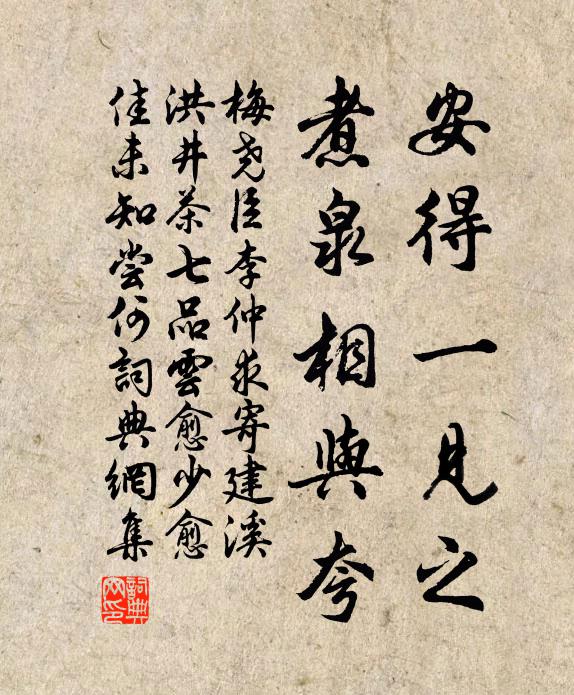 安得一見之
煮泉相與夸
梅堯臣李仲求寄建溪
洪井茶七品雲愈少愈
佳未知嘗何詞典網集
詞典網印